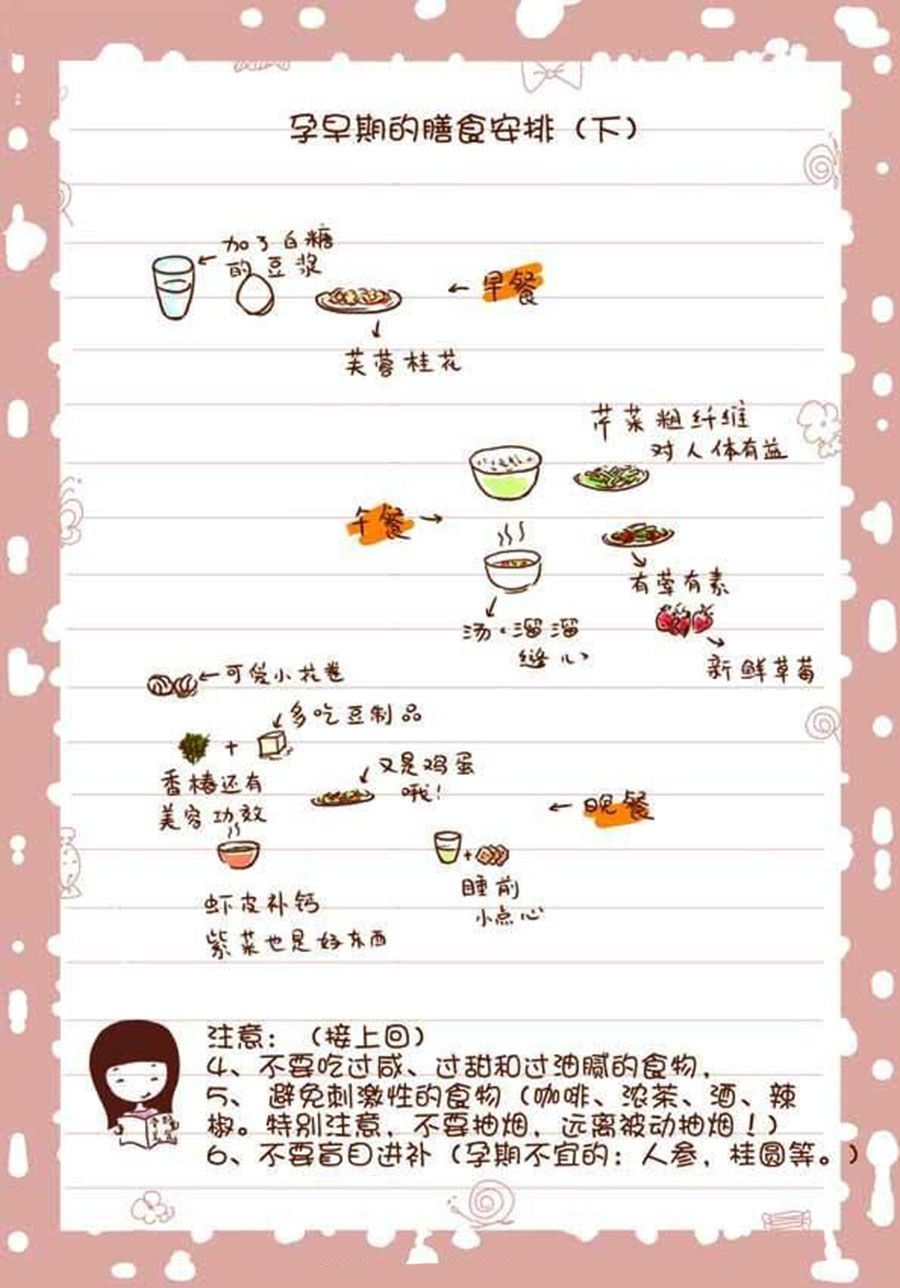 孕早期的膳食安排（下）
加了白糖
的豆浆
早餐
芙蓉桂花
芹菜粗纤维
对人体有益
午餐
有荤有素
汤，溜溜
缝心
新鲜草莓
可爱小花卷
多吃豆制品
又是鸡蛋
哦！
香椿还有
美容功效
晚餐
睡前
小点心
虾皮补钙
紫菜也是好东西
注意：（接上回）
4、不要吃过咸、过甜和过油腻的食物，
5、 避免刺激性的食物（咖啡、浓茶、酒、辣
椒。特别注意，不要抽烟，远离被动抽烟！）
6、不要盲目进补（孕期不宜的：人参，桂圆等。）